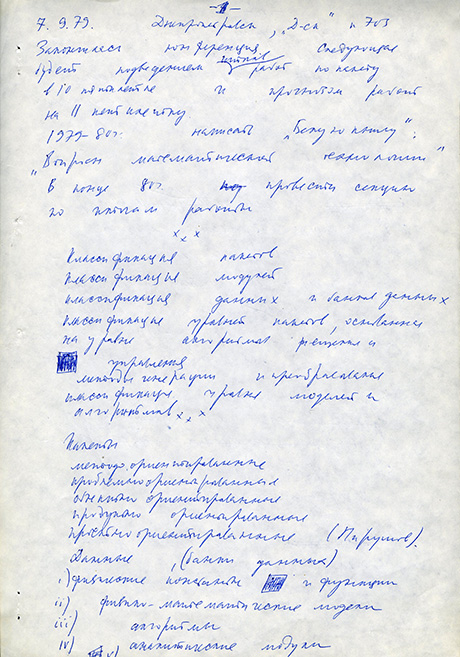 - 1 -
7.9.79. Днепропетровск, „Д-ск" к 703
Закончилась конференция. Следующая
будет подведением итогов работ по пакету
в 10 пятилетке и прогнозом работ
на 11 пятилетку
1979-80г. написать „Белую книгу".
„Вопросы математической технологии"
В конце 80г. провести секцию
по итогам работы
x x x
Классификация пакетов
классификация модулей
классификация данных и банков данных
классификация уровней пакетов, основанная
на уровне алгоритмов решения и
управления
методы генерации и преобразования
классификация уровня моделей и
алгоритмов
x x x
Пакеты
методо-ориентированные
проблемно ориентированные
объектно ориентированные
продуктно ориентированные
проектно ориентированные (Пирумов).
Данные, (банки данных)
i) физические константы и функции
ii) физико-математические модели
iii) алгоритмы
iv) аналитические модули